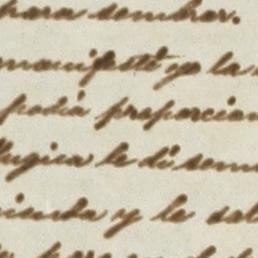 para sembrar.
manifestó yo la
podia proporcion
Mugica le di sem
ienda y le sal